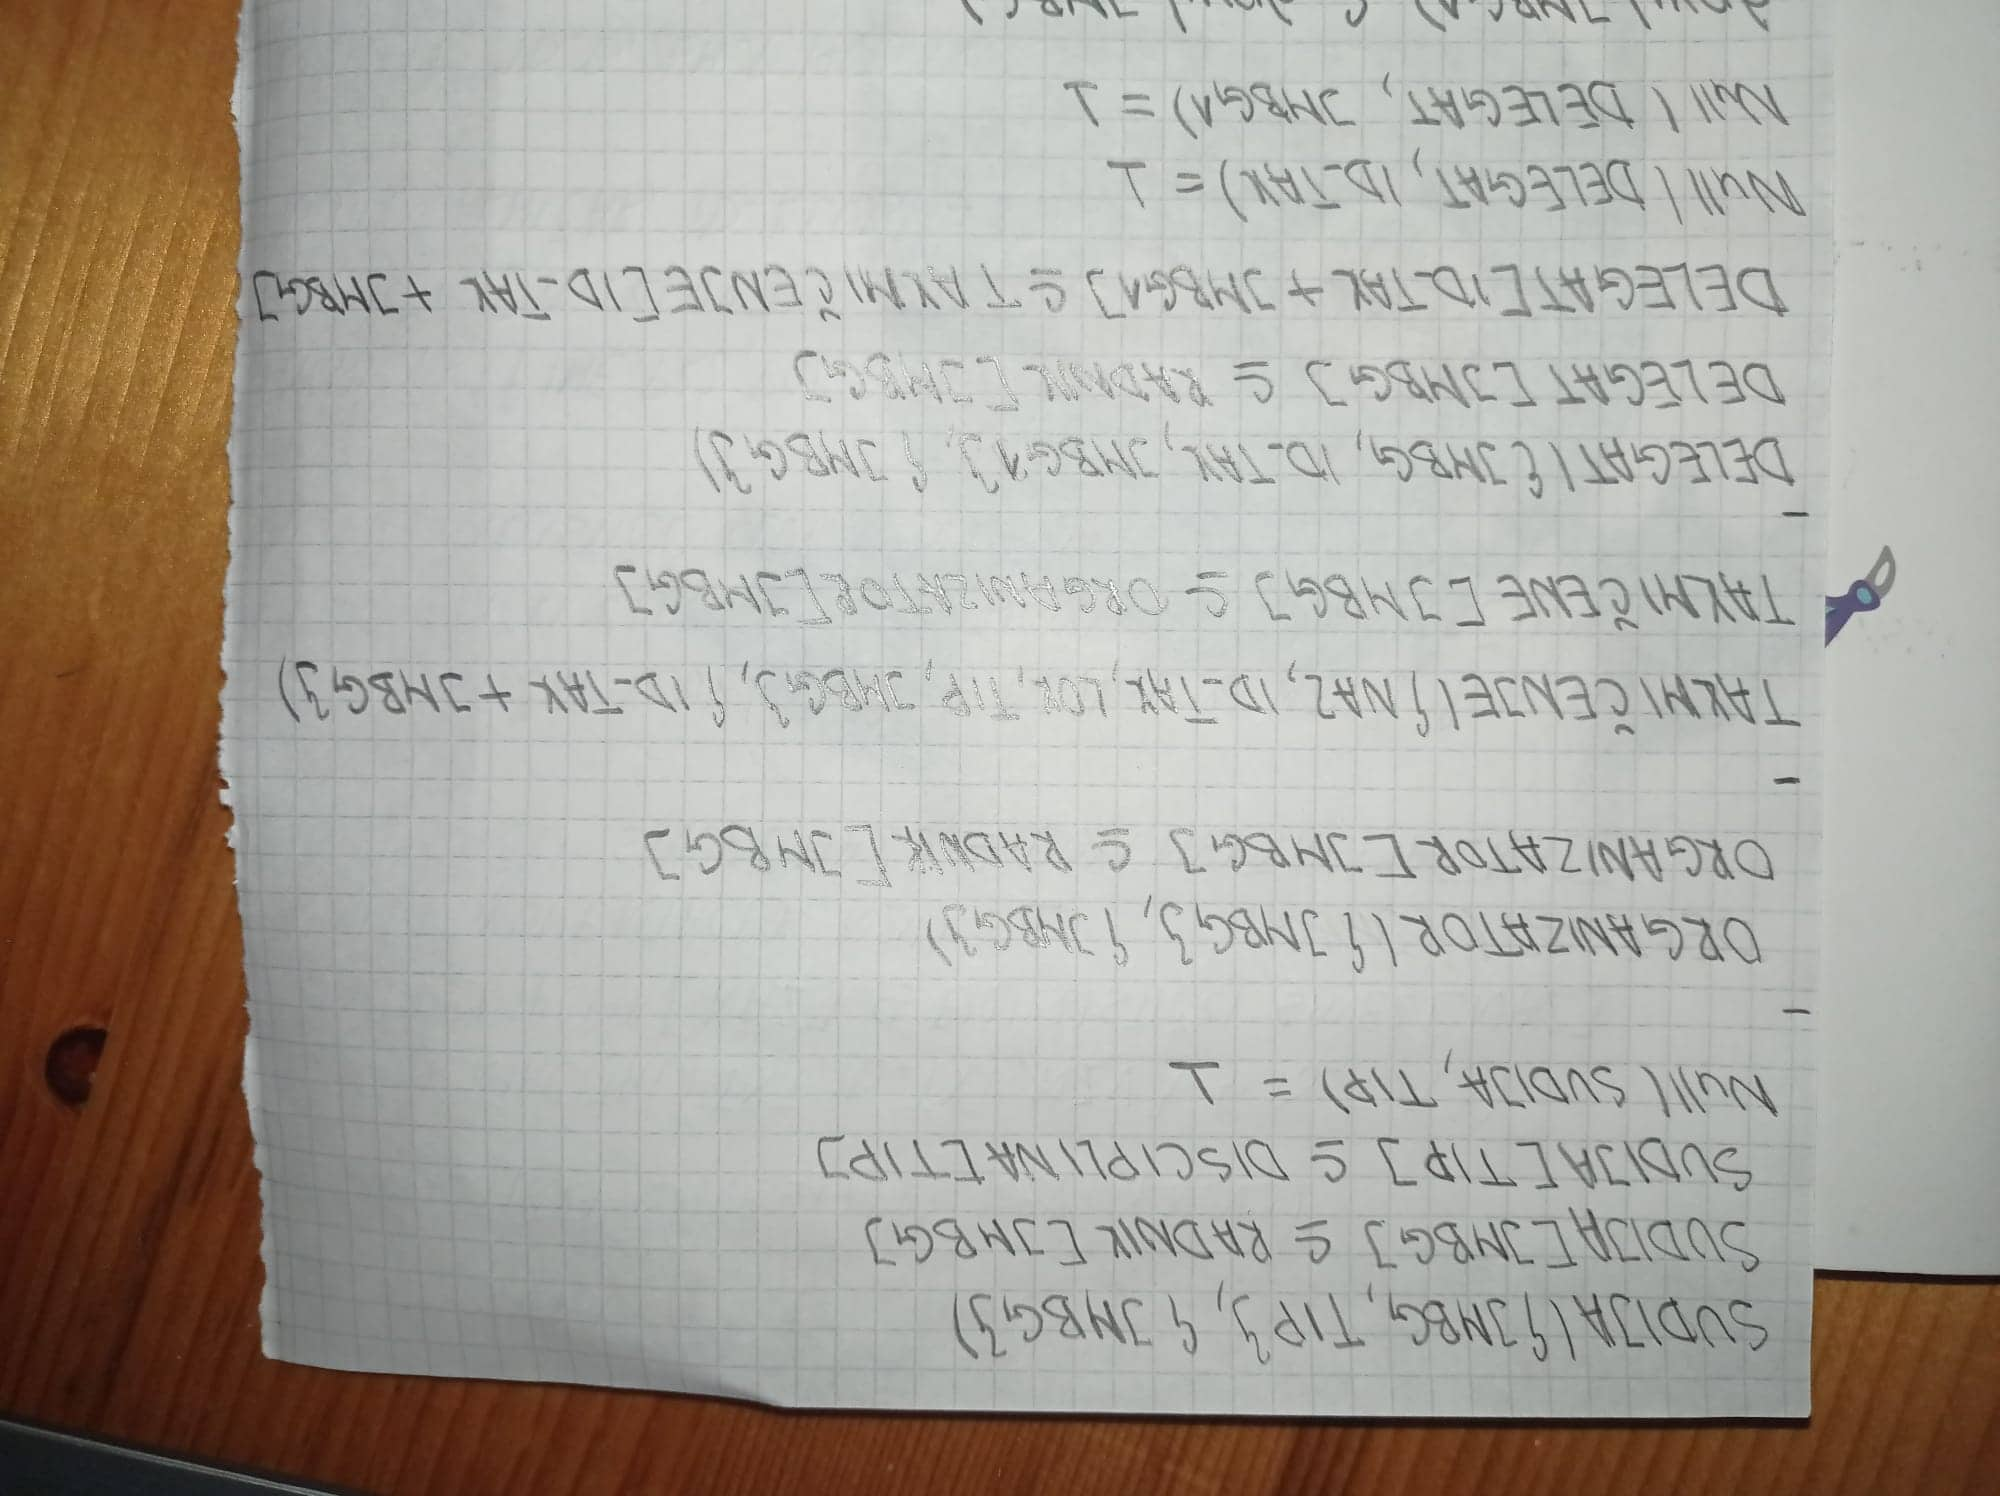 SUDIJA({JMBG, TIP}, {JMBG})
SUDIJA[JMBG] ⊆ RADNIK[JMBG]
SUDIJA[TIP] ⊆ DISCIPLINA[TIP]
Null(SUDIJA, TIP) = ⊥
-
ORGANIZATOR({JMBG}, {JMBG})
ORGANIZATOR[JMBG] ⊆ RADNIK[JMBG]
-
TAKMIČENJE({NAZ, ID-TAK, LOK, TIP, JMBG}, {ID-TAK + JMBG})
TAKMIČENE[JMBG] ⊆ ORGANIZATOR[JMBG]
-
DELEGAT({JMBG, ID-TAK, JMBG1}, {JMBG})
DELEGAT[JMBG] ⊆ RADNIK[JMBG]
DELEGAT[ID-TAK + JMBG1] ⊆ TAKMIČENJE[ID-TAK + JMBG]
Null(DELEGAT, ID-TAK) = ⊥
Null(DELEGAT, JMBG1) = ⊥